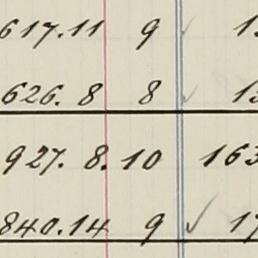 617.11 9 ✓ 13
626. 8 8 ✓ 13
927. 8. 10 163
840.14 9 ✓ 17